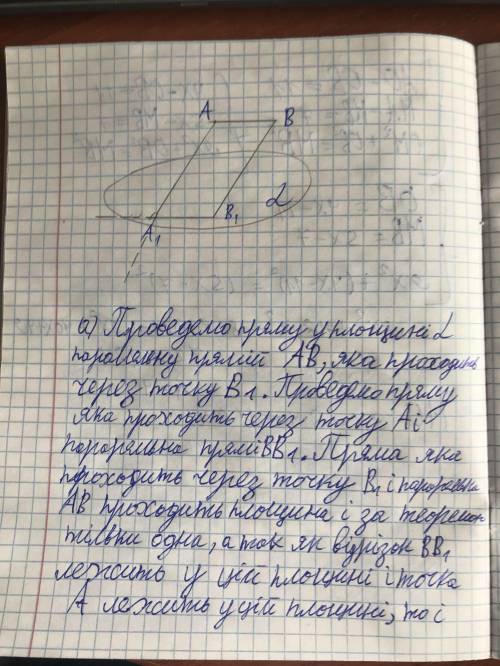 A
B
α
B₁
A₁
а) Проведемо пряму у площині α
паралельну прямій AB, яка проходить
через точку B1. Проведмо пряму
яка проходить через точку A і
параральна прямі BB1. Пряма яка
проходить через точку B1 і параральна
AB проходить площина і за теоремою
тільки одна, а так як відрізок BB1
лежить у цій площині і точка
A лежить у цій площині, то і